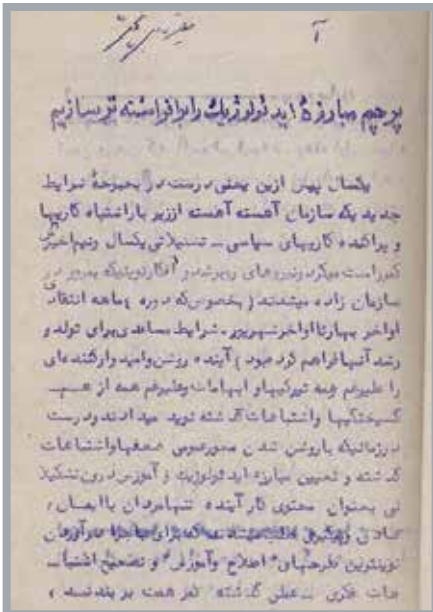 آ
پرچم مبارزهٔ ایدئولوژیک را برافراشته تر سازیم
یکسال پیش ازین یعنی درست در بحبوحهٔ شرایط
جدید یکه سازمان آهسته آهسته اززیر بار اشتباه کاریها
و پراکنده کاریهای سیاسی ــ تشکیلاتی یکسال ونیم اخیر
کمر راست میکرد و نیروهای و افکار نوینیکه بمرور در
سازمان زاده میشدند ( بخصوص که دوره ماهه انتقاد
اواخر بهار تا اواخر شهریور ، شرایط مساعدی برای تولد و
رشد آنها فراهم کرده بود ) آینده روشن وامید وارکننده ای
را علیرغم همه تیرگیها و ابهامات وعلیرغم همه از هم
گسیختگیها واشتباهات گذشته نوید میدادند ودرست
درزمانیکه باروشن شدن محور عمومی ضعفها واشتباهات
گذشته و تعیین مبارزه ایدئولوژیک و آموزش درون تشکیلا
تی بعنوان محتوی کار آینده
نوینترین طرحهای " اصلاح وآموزش " و تصحیح اشتبا
هات فکری ــ عملی گذشته کمر همت بر بسته